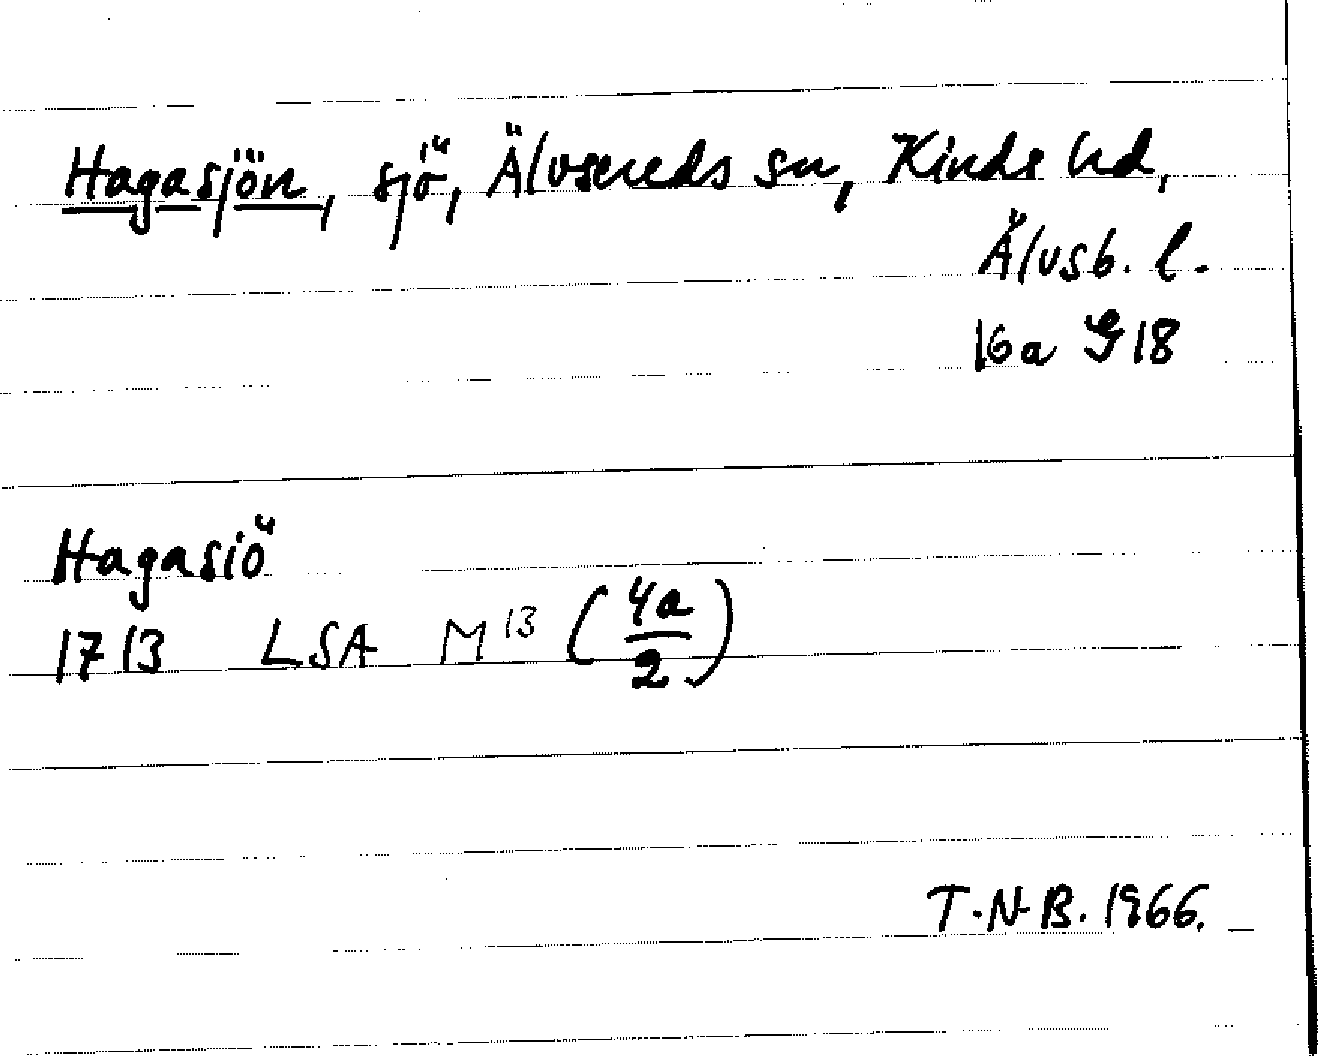 Hagasjön, sjö, Älvsereds sn, Kinds hd,
Älvsb. l.
16a G 18
Hagasiö
1713 LSA M 13 (4a/2)
T.N.B. 1966.